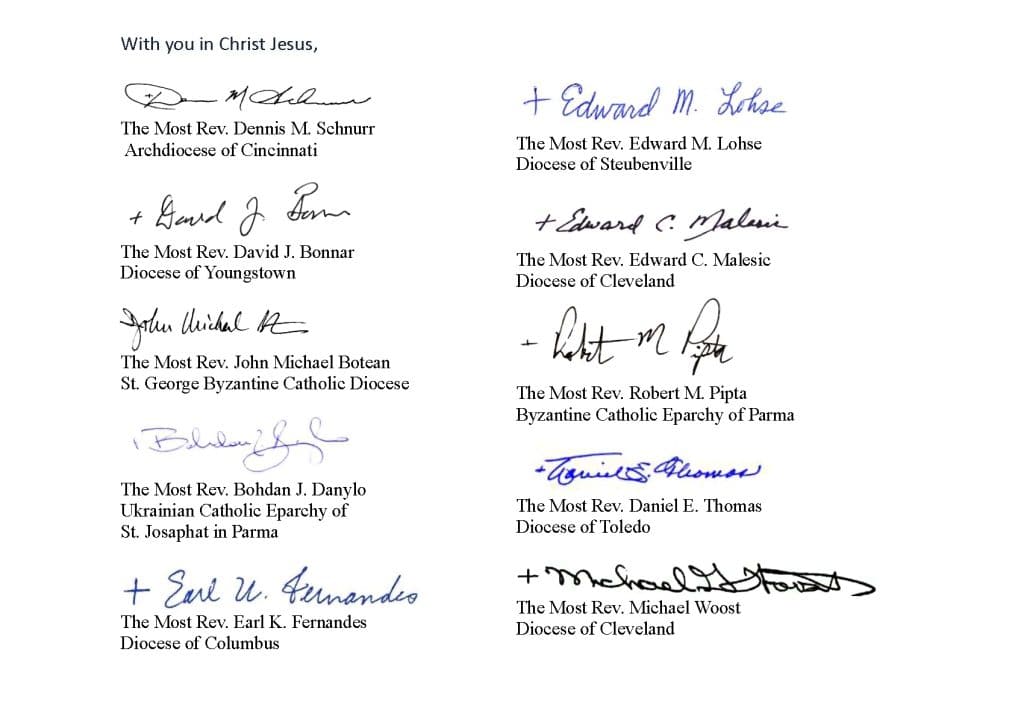 With you in Christ Jesus,
The Most Rev. Dennis M. Schnurr
Archdiocese of Cincinnati
+ David J. Bonnar
The Most Rev. David J. Bonnar
Diocese of Youngstown
John Michael
The Most Rev. John Michael Botean
St. George Byzantine Catholic Diocese
The Most Rev. Bohdan J. Danylo
Ukrainian Catholic Eparchy of
St. Josaphat in Parma
+ Earl K. Fernandes
The Most Rev. Earl K. Fernandes
Diocese of Columbus
+ Edward M. Lohse
The Most Rev. Edward M. Lohse
Diocese of Steubenville
+ Edward C. Malesic
The Most Rev. Edward C. Malesic
Diocese of Cleveland
+ Robert M Pipta
The Most Rev. Robert M. Pipta
Byzantine Catholic Eparchy of Parma
+ Daniel E. Thomas
The Most Rev. Daniel E. Thomas
Diocese of Toledo
+ Michael G Woost
The Most Rev. Michael Woost
Diocese of Cleveland